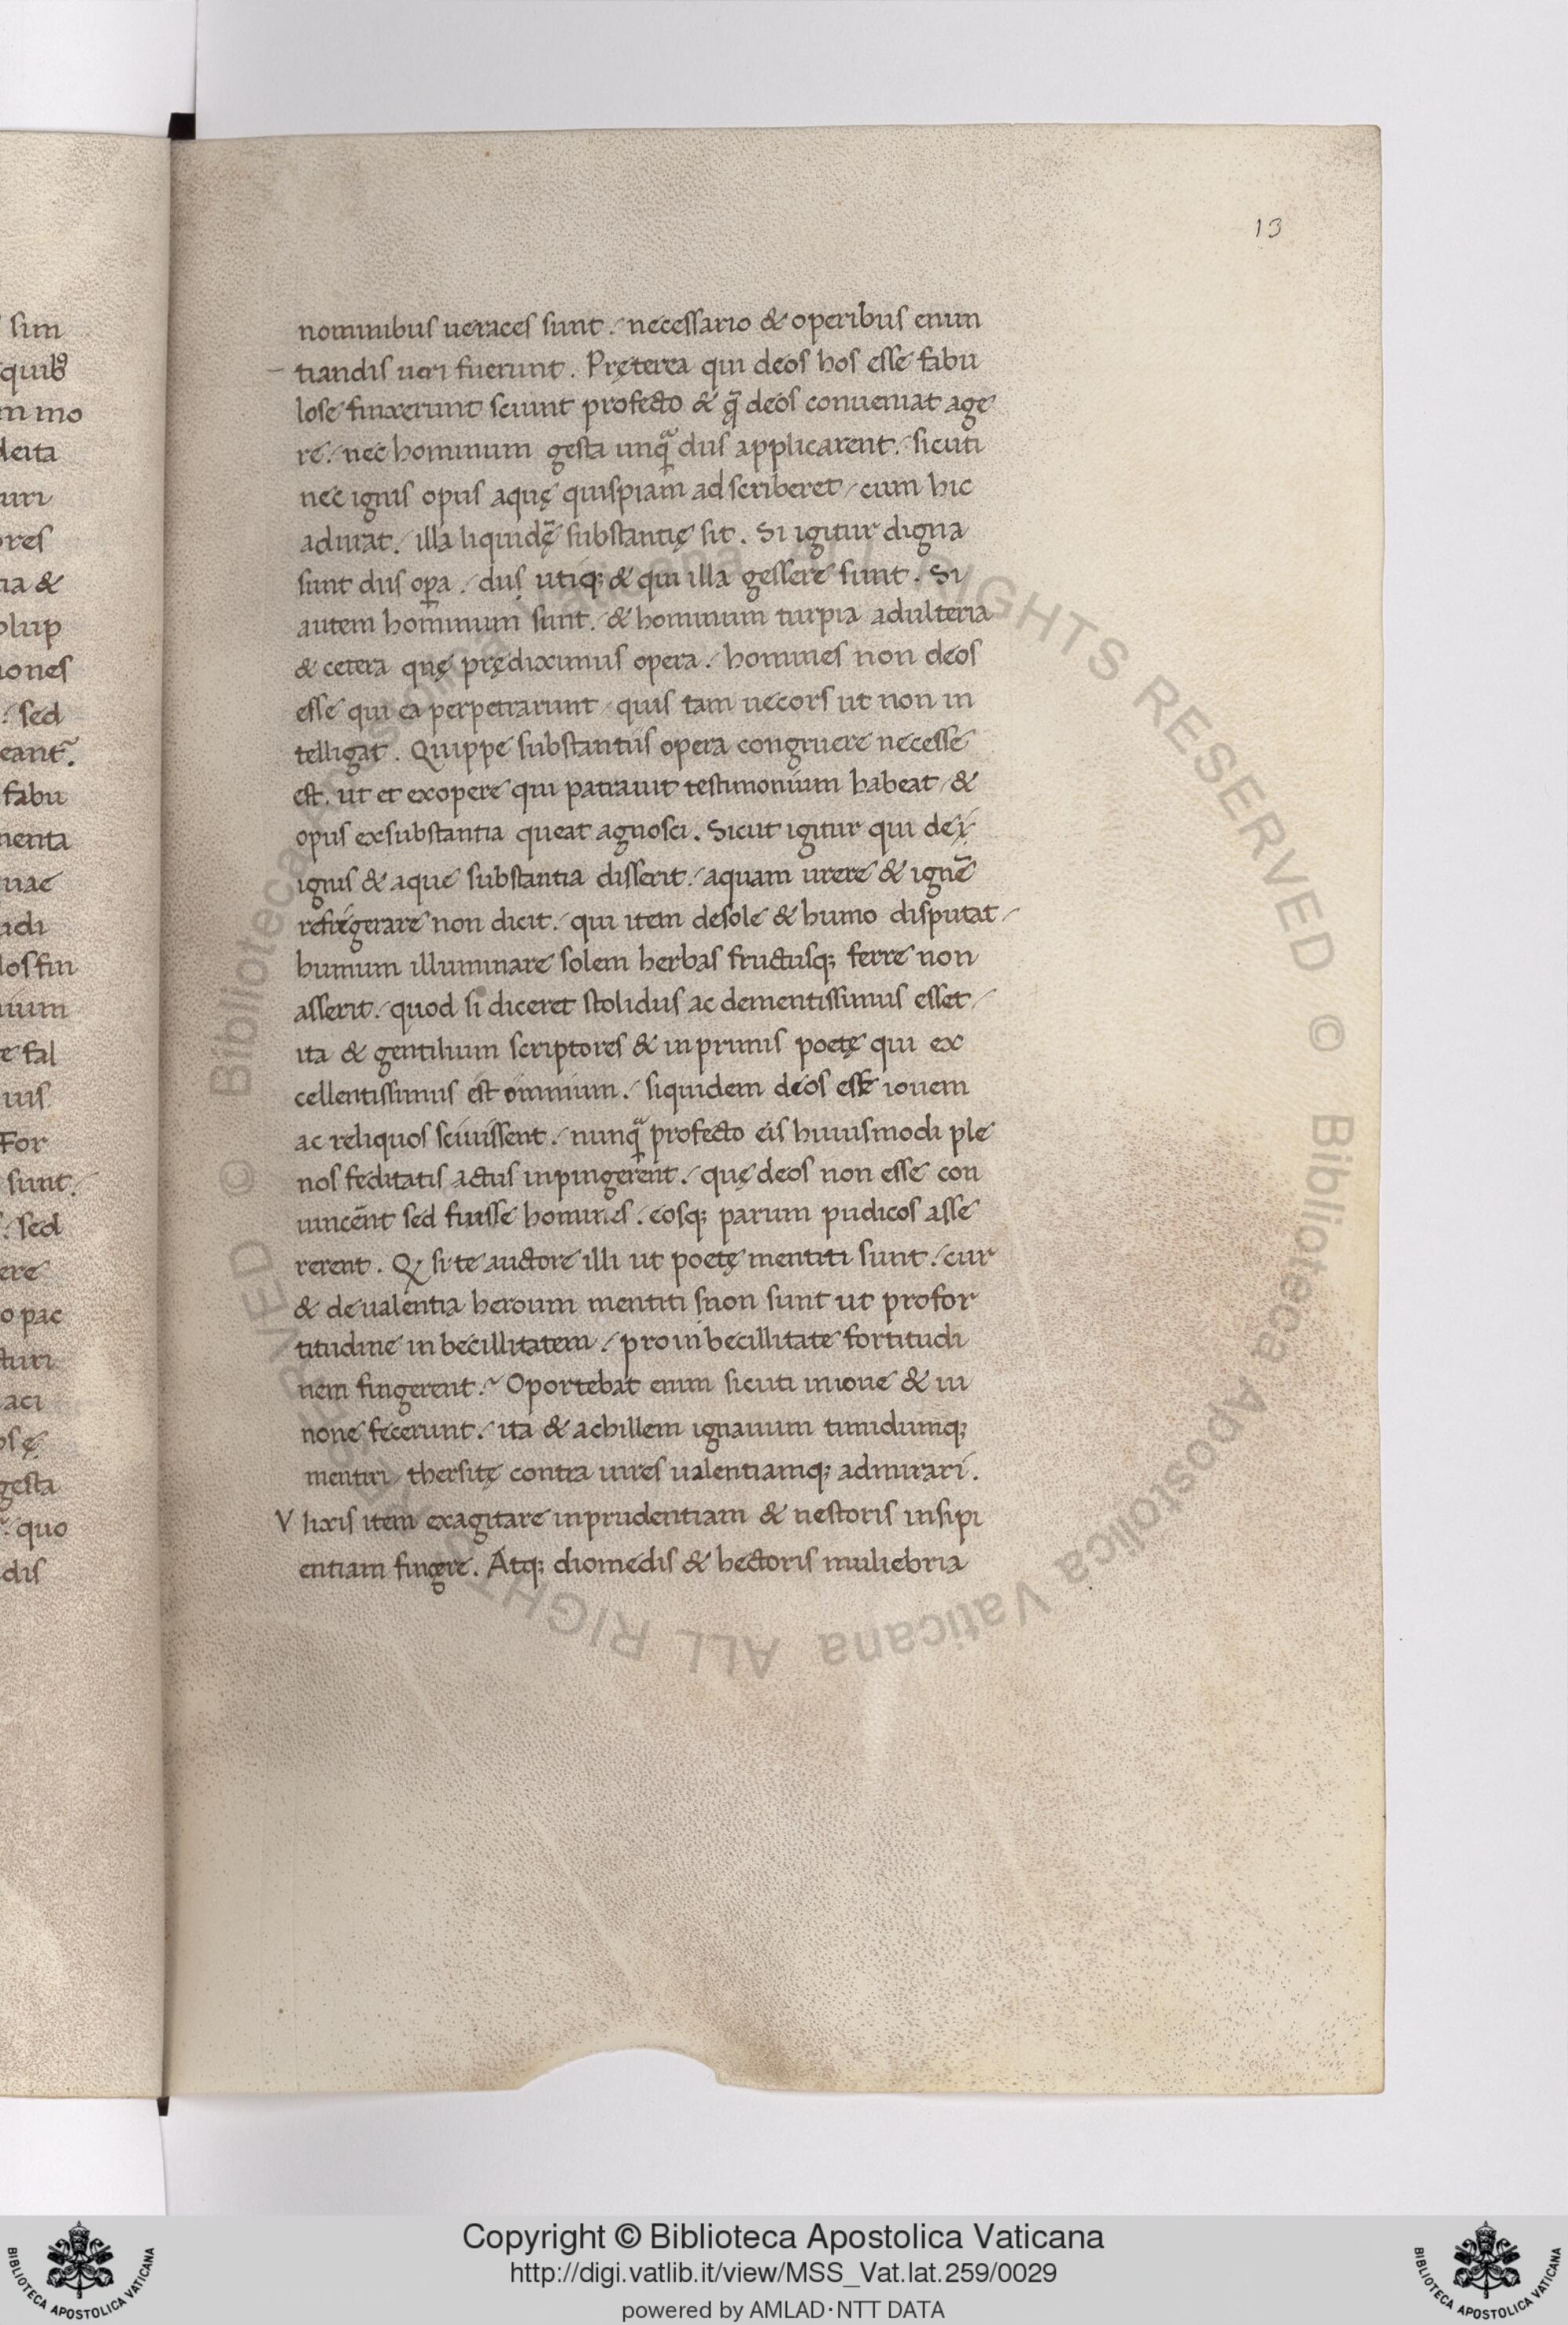 13
nominibus ueraces sunt. necessario & operibus enun
tiandis ueri fuerunt. Pręterea qui deos hos esse fabu
lose finxerunt sciunt profecto & q̄ deos conueniat age
re. nec hominum gesta unq̄ diis applicarent. sicuti
nec ignis opus aquę quispiam adscriberet / cum hic
adurat. illa liquidę substantię sit. Si igitur digna
sunt diis opa. dii utiq; & qui illa gessere sunt. Si
autem hominum sunt. & hominum turpia adulteria
& cetera quę prędiximus opera. homines non deos
esse qui ea perpetrarunt / quis tam uecors ut non in
telligat. Quippe substantiis opera congruere necesse
est. ut et exopere qui patrauit testimonium habeat / &
opus exsubstantia queat agnosci. Sicut igitur qui de
ignis & aque substantia disserit. aquam urere & ignē
refrigerare non dicit. qui item desole & humo disputat /
humum illuminare solem herbas fructusq; ferre non
asserit. quod si diceret stolidus ac dementissimus esset /
ita & gentilium scriptores & inprimis poetę qui ex
cellentissimus est omnium. siquidem deos esse iouem
ac reliquos sciuissent. nunq̄ profecto eis huiusmodi ple
nos feditatis actus inpingerent. quę deos non esse con
uincent sed fuisse homines. eosq; parum pudicos asse
rerent. Qx si te auctore illi ut poetę mentiti sunt. cur
& de ualentia heroum mentiti non sunt ut profor
titudine inbecillitatem. pro inbecillitate fortitudi
nem fingerent. Oportebat enim sicuti inioue & iu
none fecerunt. ita & achillem ignauum timidumq;
mentiri / thersitę contra uires ualentiamq; admirari.
Vlixis item exagitare inprudentiam & nestoris insipi
entiam fingre. Atq; diomedis & hectoris muliebria
sim
quib9
m mo
deita
uri
ores
ia &
olup
iones
sed
eant
fabu
menta
uae
adi
los fin
uium
te fal
uis
For
sunt.
sed
ere
o pac
turi
aci
gesta
quo
dis
© Biblioteca Apostolica Vaticana ALL RIGHTS RESERVED © Biblioteca Apostolica Vaticana ALL RIGHTS RESERVED
Copyright © Biblioteca Apostolica Vaticana
http://digi.vatlib.it/view/MSS_Vat.lat.259/0029
powered by AMLAD·NTT DATA
BIBLIOTECA APOSTOLICA VATICANA
BIBLIOTECA APOSTOLICA VATICANA